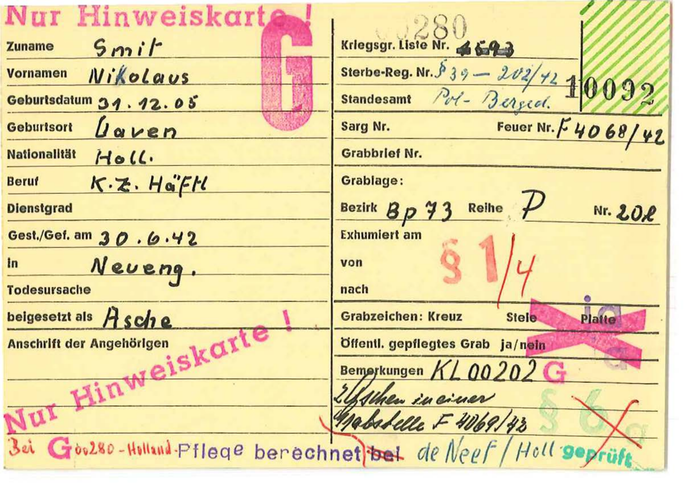 Nur Hinweiskarte !
G
Zuname Smit
Vornamen Nikolaus
Geburtsdatum 31.12.05
Geburtsort Daven
Nationalität Holl.
Beruf K.Z. Häftl
Dienstgrad
Gest./Gef. am 30.6.42
in Neueng.
Todesursache
beigesetzt als Asche
Anschrift der Angehörigen
Nur Hinweiskarte !
00280
Kriegsgr. Liste Nr. 4593
Sterbe-Reg. Nr. § 39 – 202/42
10092
Standesamt Pol- Berged.
Sarg Nr. Feuer Nr. F 4068/42
Grabbrief Nr.
Grablage:
Bezirk Bp 73 Reihe P Nr. 20
Exhumiert am
von
nach
§ 1/4
Grabzeichen: Kreuz Stele Platte
ja
Öffentl. gepflegtes Grab ja/nein
Bemerkungen KL 00202 G
2 Aschen in einer
Grabstelle F 4069/42
§ 6
Bei G 00280 - Holland. Pflege berechnet bei de Neef / Holl geprüft